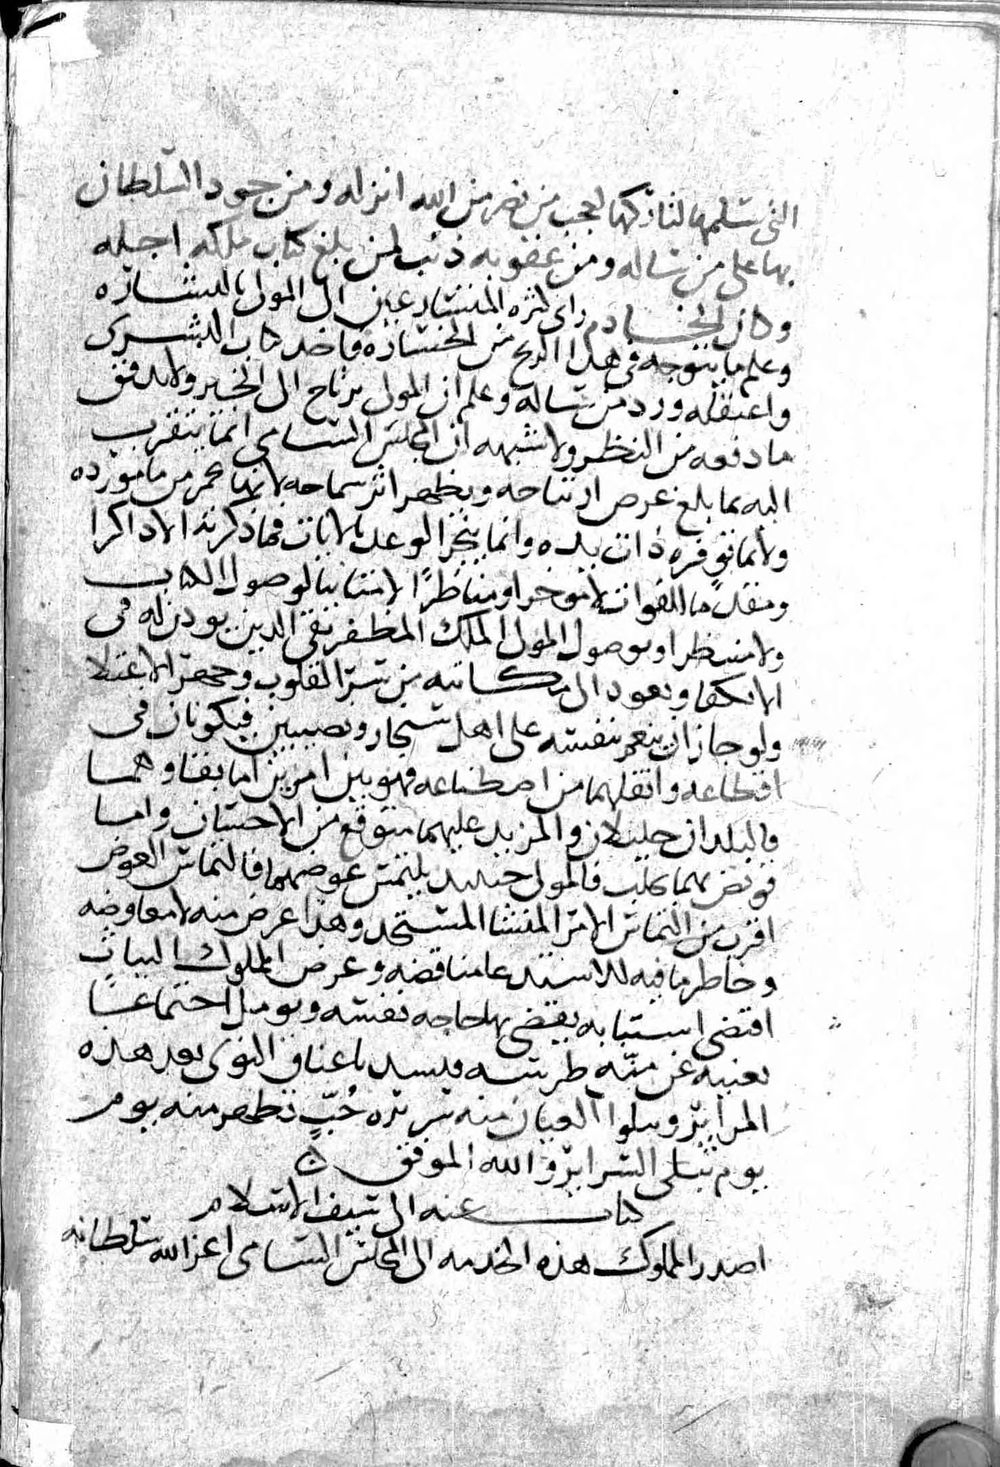 التى تسلمها لتاركها لعجب من نصر من الله انزله ومن جود السلطان
بها على من ساله ومن عقوبه ذنب لمن بلغ كتاب ملكه اجله
وكان الخادم راى كثره المستشارعين الى المولى بالبشاره
وعلم ما يتوجه فى هذا الربح من الخساره فاخذ كتاب البشرى
واعتقله ورد من ساله وعلم ان المولى يرتاح الى الخبر ولابد فتق
ما دفعه من النظر ولا شبهه ان المجلس السامى انما يتقرب
اليه بما بلغ غرض ارتياحه ويظهر اثر سماحه لانها عمر من ما مورده
ولانما توفره ذات يده وانما ينجز الوعد بالاثبات فما ذكرته الا ذاكرا
ومقدما للفوات لا موخرا ومناظرًا لامتنا بنا لوصول الكتاب
ولا منتظرا وبوصول المولى الملك المظفر تقى الدين يوذن له فى
الانكفا ويعود الى مكانته من سر القلوب وجمهر الاعتلا
ولو جاز ان ينعم بنفسه على اهل سنجار ونصيبين فيكونان فى
اقطاعه وانقلهما من اصطناعه فهو بين امرين اما بقاوهما
فالبلدان جليلان والمزيد عليهما متوقع من الاحسان واما
تعويض بهما بحلب فالمولى حينئذ يلتمس عوضهما فالتماس العوض
اقرب من التماس الامر المنشا المستجد وهذا عرض منه لا معاوضه
وخاطر ما فيه للاستدعا مناقضه وعرض الملوك البيات
اقتضى استنابه يقضى بها حاجه نفسه ويومل اجتماعا
يغنيه عن منه طرسه فيسد باعناق النوى بعد هذه
المراير وسلوا العيان منه سريره حُبٍّ تظهر منه يوم
يوم تبلى السراير والله الموفق ن
كتاب عنه الى سيف الاسلام
اصدر المملوك هذه الخدمه الى المجلس السامى اعز الله سلطانه